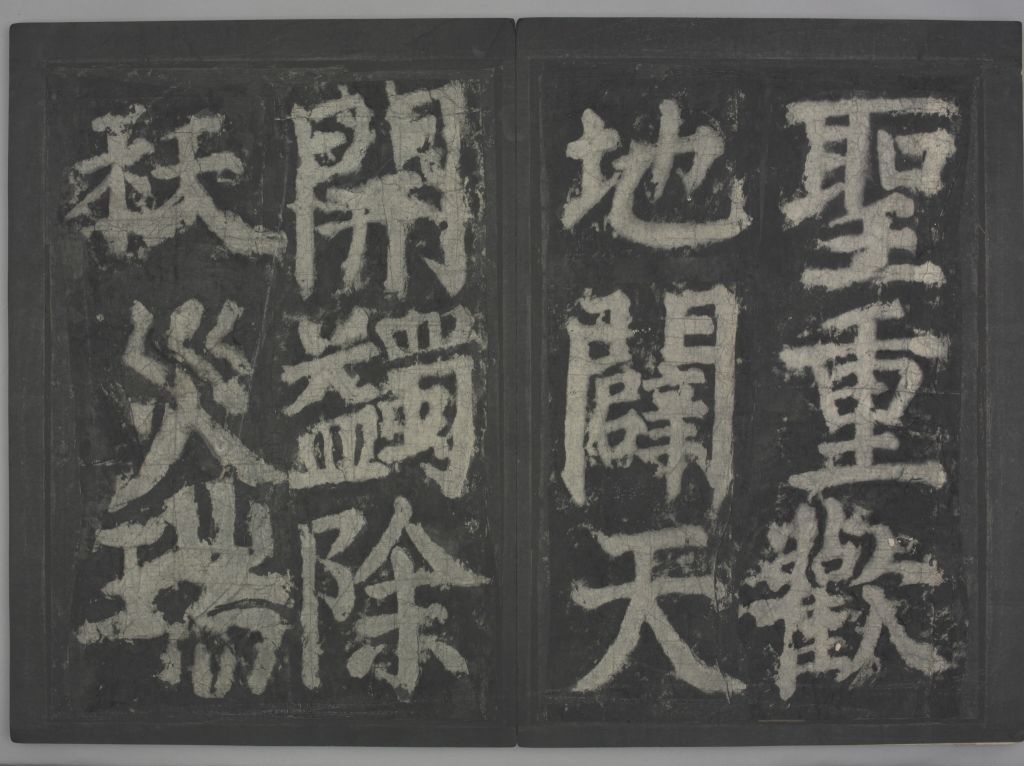 聖重歡
地闢天
開蠲除
祅災瑞